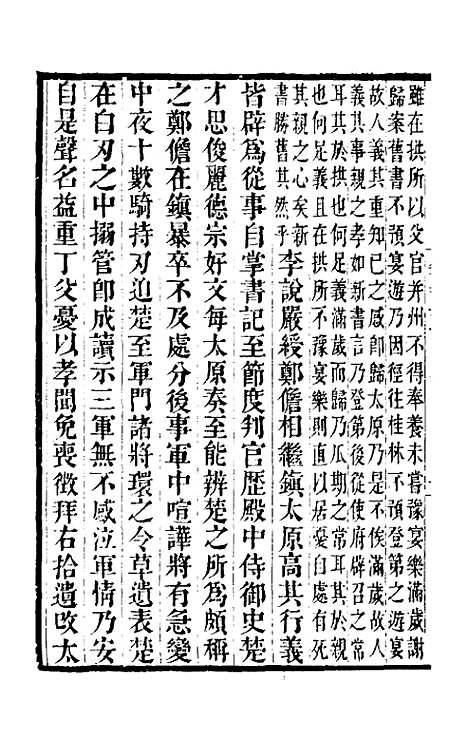 雖在拱所以父官并州不得奉養未嘗豫宴樂滿歲謝
歸案舊書不預宴遊乃因徑往桂林不預登第之遊宴
故人義其重知己之感卽歸太原乃是不俟滿歲故人
義其事親之孝如新書言乃登第後從使府辟召之常
耳其於拱也何足義滿歲而歸乃瓜期之常耳其於親
也何足義且在拱所不豫宴樂則直以居憂自處有死
其親之心矣新
書勝舊其然乎李說嚴綬鄭儋相繼鎭太原高其行義
皆辟爲從事自掌書記至節度判官歷殿中侍御史楚
才思俊麗德宗好文每太原奏至能辨楚之所爲頗稱
之鄭儋在鎭暴卒不及處分後事軍中喧譁將有急變
中夜十數騎持刃迫楚至軍門諸將環之令草遺表楚
在白刃之中搦管卽成讀示三軍無不感泣軍情乃安
自是聲名益重丁父憂以孝聞免喪徵拜右拾遺改太